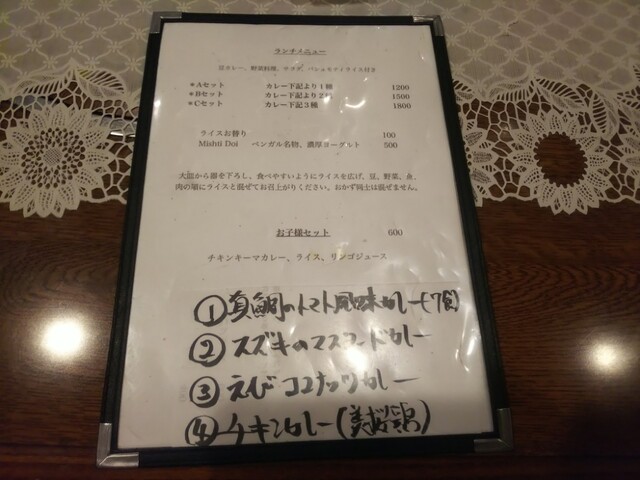 ランチメニュー
豆カレー、野菜料理、サラダ、バシュモティライス付き
＊Aセット カレー下記より1種 1200
＊Bセット カレー下記より2種 1500
＊Cセット カレー下記3種 1800
ライスお替り 100
Mishti Doi ベンガル名物、濃厚ヨーグルト 500
大皿から器を下ろし、食べやすいようにライスを広げ、豆、野菜、魚、
肉の順にライスと混ぜてお召上がりください。おかず同士は混ぜません。
お子様セット 600
チキンキーマカレー、ライス、リンゴジュース
① 真鯛のトマト風味カレー
② スズキのマスタードカレー
③ えびココナッツカレー
④ チキンカレー(美桜鶏)